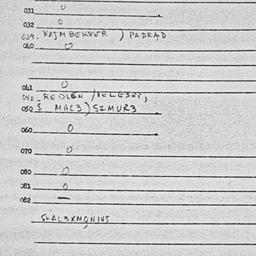 031 0
032 0
039 - KAJMBEKKER ) PADRAD
040 0
041 0
042 - REDLEN /
050 $ MAC3) SZMUR3
060 0
070 0
080 0
081 0
082 —
SLALBXMQNIUS